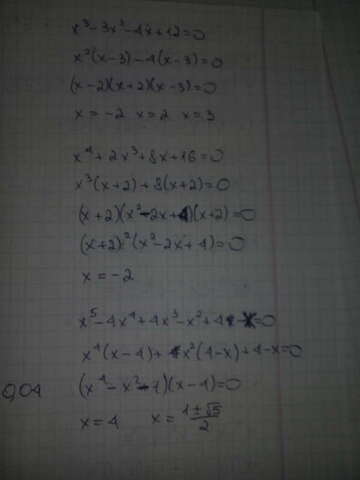 x³-3x²-4x+12=0
x²(x-3)-4(x-3)=0
(x-2)(x+2)(x-3)=0
x=-2 x=2 x=3
x⁴+2x³+8x+16=0
x³(x+2)+8(x+2)=0
(x+2)(x²-2x+4)(x+2)=0
(x+2)²(x²-2x+4)=0
x=-2
x⁵-4x⁴+4x³-x²+4-x=0
x⁴(x-4)+x²(4-x)+4-x=0
0,04 (x⁴-x²-1)(x-4)=0
x=4 x=(1±√5)/2